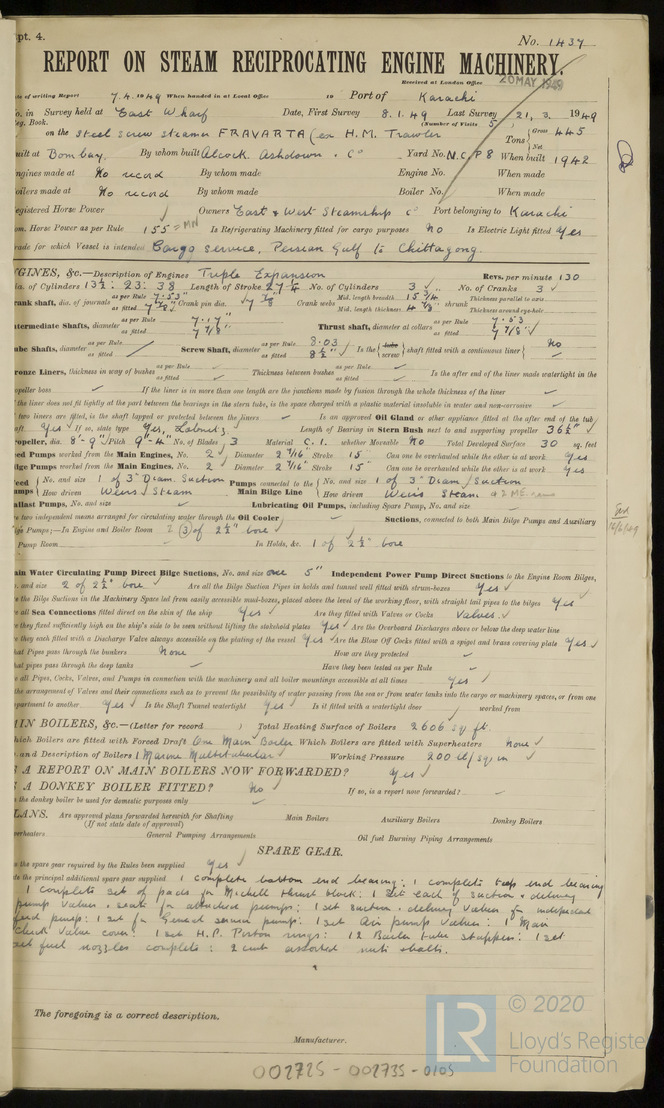 pt. 4.
No. 1437
REPORT ON STEAM RECIPROCATING ENGINE MACHINERY.
Received at London Office
20 MAY 1949
of writing Report 7.4.1949 When handed in at Local Office 19 Port of Karachi
o. in Survey held at East Wharf Date, First Survey 8.1.49 Last Survey 21.3.1949
eg. Book. (Number of Visits 5
on the steel screw steamer FRAVARTA (ex H.M. Trawler Tons Gross 445
Net
uilt at Bombay. By whom built Alcock Ashdown & Co Yard No. N.C. P8 When built 1942
ngines made at No record By whom made Engine No. When made
oilers made at No record By whom made Boiler No. When made
egistered Horse Power Owners East & West Steamship Co Port belonging to Karachi
om. Horse Power as per Rule 155 = MN Is Refrigerating Machinery fitted for cargo purposes No Is Electric Light fitted Yes
rade for which Vessel is intended Cargo service, Persian Gulf to Chittagong.
GINES, &c.—Description of Engines Triple Expansion Revs. per minute 130
ia. of Cylinders 13½ : 23 : 38 Length of Stroke 27½ No. of Cylinders 3 No. of Cranks 3
rank shaft, dia. of journals as per Rule 7.53" as fitted 7⅞" Crank pin dia. 7⅞" Crank webs Mid. length breadth 15¾ Mid. length thickness 4⅞ shrunk Thickness parallel to axis Thickness around eye-hole
ntermediate Shafts, diameter as per Rule 7.17" as fitted 7⅞" Thrust shaft, diameter at collars as per Rule 7.53 as fitted 7⅞"
ube Shafts, diameter as per Rule as fitted Screw Shaft, diameter as per Rule 8.03 as fitted 8½" Is the tube screw shaft fitted with a continuous liner No
ronze Liners, thickness in way of bushes as per Rule as fitted Thickness between bushes as per Rule as fitted Is the after end of the liner made watertight in the
opeller boss If the liner is in more than one length are the junctions made by fusion through the whole thickness of the liner
the liner does not fit tightly at the part between the bearings in the stern tube, is the space charged with a plastic material insoluble in water and non-corrosive
two liners are fitted, is the shaft lapped or protected between the liners Is an approved Oil Gland or other appliance fitted at the after end of the tub
aft Yes If so, state type Yes, Length of Bearing in Stern Bush next to and supporting propeller 36½"
opeller, dia. 8'-9" Pitch 9'-4" No. of Blades 3 Material C.I. whether Moveable No Total Developed Surface 30 sq. feet
eed Pumps worked from the Main Engines, No. 2 Diameter 2 7/16" Stroke 15" Can one be overhauled while the other is at work Yes
ilge Pumps worked from the Main Engines, No. 2 Diameter 2 7/16" Stroke 15" Can one be overhauled while the other is at work Yes
eed No. and size 1 of 3" Diam. Suction Pumps connected to the No. and size 1 of 3" Diam Suction
umps How driven Weirs Steam Main Bilge Line How driven Weir Steam
allast Pumps, No. and size Lubricating Oil Pumps, including Spare Pump, No. and size
e two independent means arranged for circulating water through the Oil Cooler Suctions, connected to both Main Bilge Pumps and Auxiliary
lge Pumps;—In Engine and Boiler Room 2 (3) of 2½" bore
Pump Room In Holds, &c. 1 of 2½" bore
ain Water Circulating Pump Direct Bilge Suctions, No. and size one 5" Independent Power Pump Direct Suctions to the Engine Room Bilges,
and size 2 of 2½" bore Are all the Bilge Suction Pipes in holds and tunnel well fitted with strum-boxes Yes
e the Bilge Suctions in the Machinery Space led from easily accessible mud-boxes, placed above the level of the working floor, with straight tail pipes to the bilges Yes
e all Sea Connections fitted direct on the skin of the ship Yes Are they fitted with Valves or Cocks Valves
e they fixed sufficiently high on the ship's side to be seen without lifting the stokehold plates Yes Are the Overboard Discharges above or below the deep water line
e they each fitted with a Discharge Valve always accessible on the plating of the vessel Yes Are the Blow Off Cocks fitted with a spigot and brass covering plate Yes
hat Pipes pass through the bunkers None How are they protected
hat pipes pass through the deep tanks Have they been tested as per Rule
e all Pipes, Cocks, Valves, and Pumps in connection with the machinery and all boiler mountings accessible at all times Yes
the arrangement of Valves and their connections such as to prevent the possibility of water passing from the sea or from water tanks into the cargo or machinery spaces, or from one
partment to another Yes Is the Shaft Tunnel watertight Yes Is it fitted with a watertight door worked from
IN BOILERS, &c.—(Letter for record ) Total Heating Surface of Boilers 2606 sq ft.
hich Boilers are fitted with Forced Draft One Main Boiler Which Boilers are fitted with Superheaters None
and Description of Boilers 1 Marine Multitubular Working Pressure 200 lb/sq in
A REPORT ON MAIN BOILERS NOW FORWARDED? Yes
A DONKEY BOILER FITTED? No If so, is a report now forwarded?
the donkey boiler be used for domestic purposes only
LANS. Are approved plans forwarded herewith for Shafting Main Boilers Auxiliary Boilers Donkey Boilers
(If not state date of approval)
erheaters General Pumping Arrangements Oil fuel Burning Piping Arrangements
SPARE GEAR.
s the spare gear required by the Rules been supplied Yes
te the principal additional spare gear supplied 1 complete bottom end bearing: 1 complete top end bearing
1 complete set of pads for Michell thrust block: 1 set each of suction & delivery
pump valves & seats for attached pumps: 1 set suction & delivery valves for independent
feed pump: 1 set for General service pump: 1 set Air pump valves: 1 Main
check valve cover: 1 set H.P. Piston rings: 12 Boiler tube stoppers: 1 set
set fuel nozzles complete: 2 cwt assorted nuts & bolts.
The foregoing is a correct description.
Manufacturer.
© 2020
LR
Lloyd's Registe
Foundation
002725 - 002735 - 0105